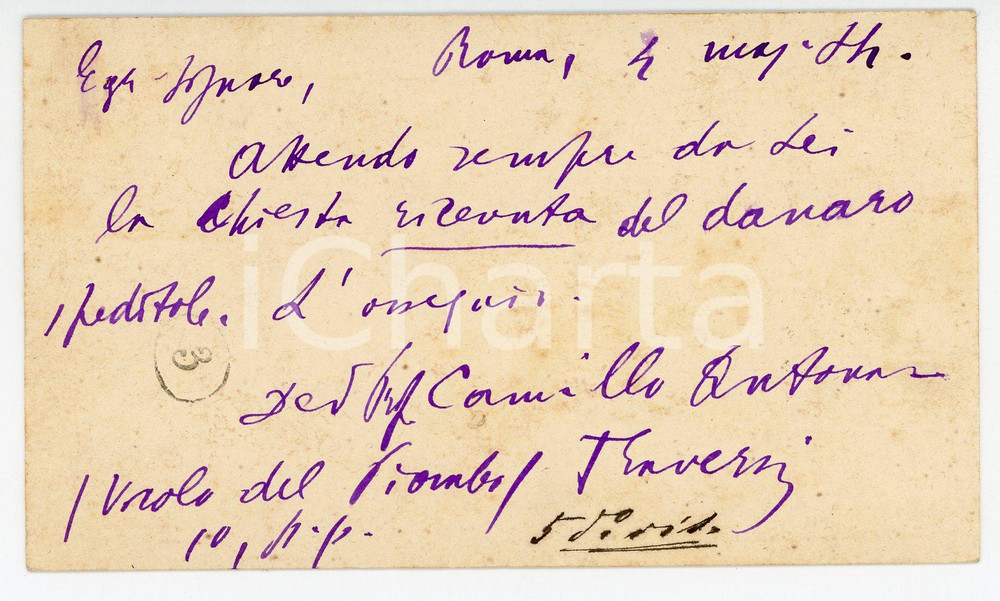 Egr. Signore, Roma, 4 mag.
Attendo sempre da Lei
la chiesta ricevuta del danaro
speditole. L'ossequio.
3
Dev Prf Camillo Antona
/ Vicolo del Piombo / Traversi
10, p. p.
5 do
iCharta